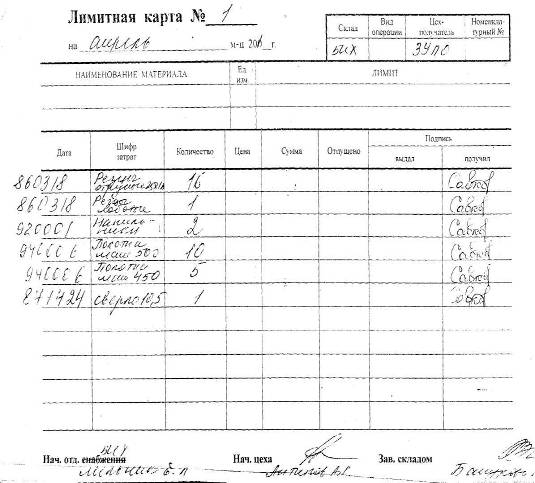 Лимитная карта № 1
на апрель м-ц 201 г.
Склад Вид операции Цех-получатель Номенклатурный №
БИХ ЗУПО
НАИМЕНОВАНИЕ МАТЕРИАЛА Ед. изм ЛИМИТ
Дата Шифр затрат Количество Цена Сумма Отпущено Подпись
выдал получил
860318 Резцы 16 Савков
860318 1 Савков
920001 Напильники 2 Савков
940006 Полотна маш 500 10 Савков
940006 Полотна маш 450 5 Савков
871724 сверло 10,5 1 Савков
Нач. отд. снабжения БИХ Нач. цеха Зав. складом
Антипов